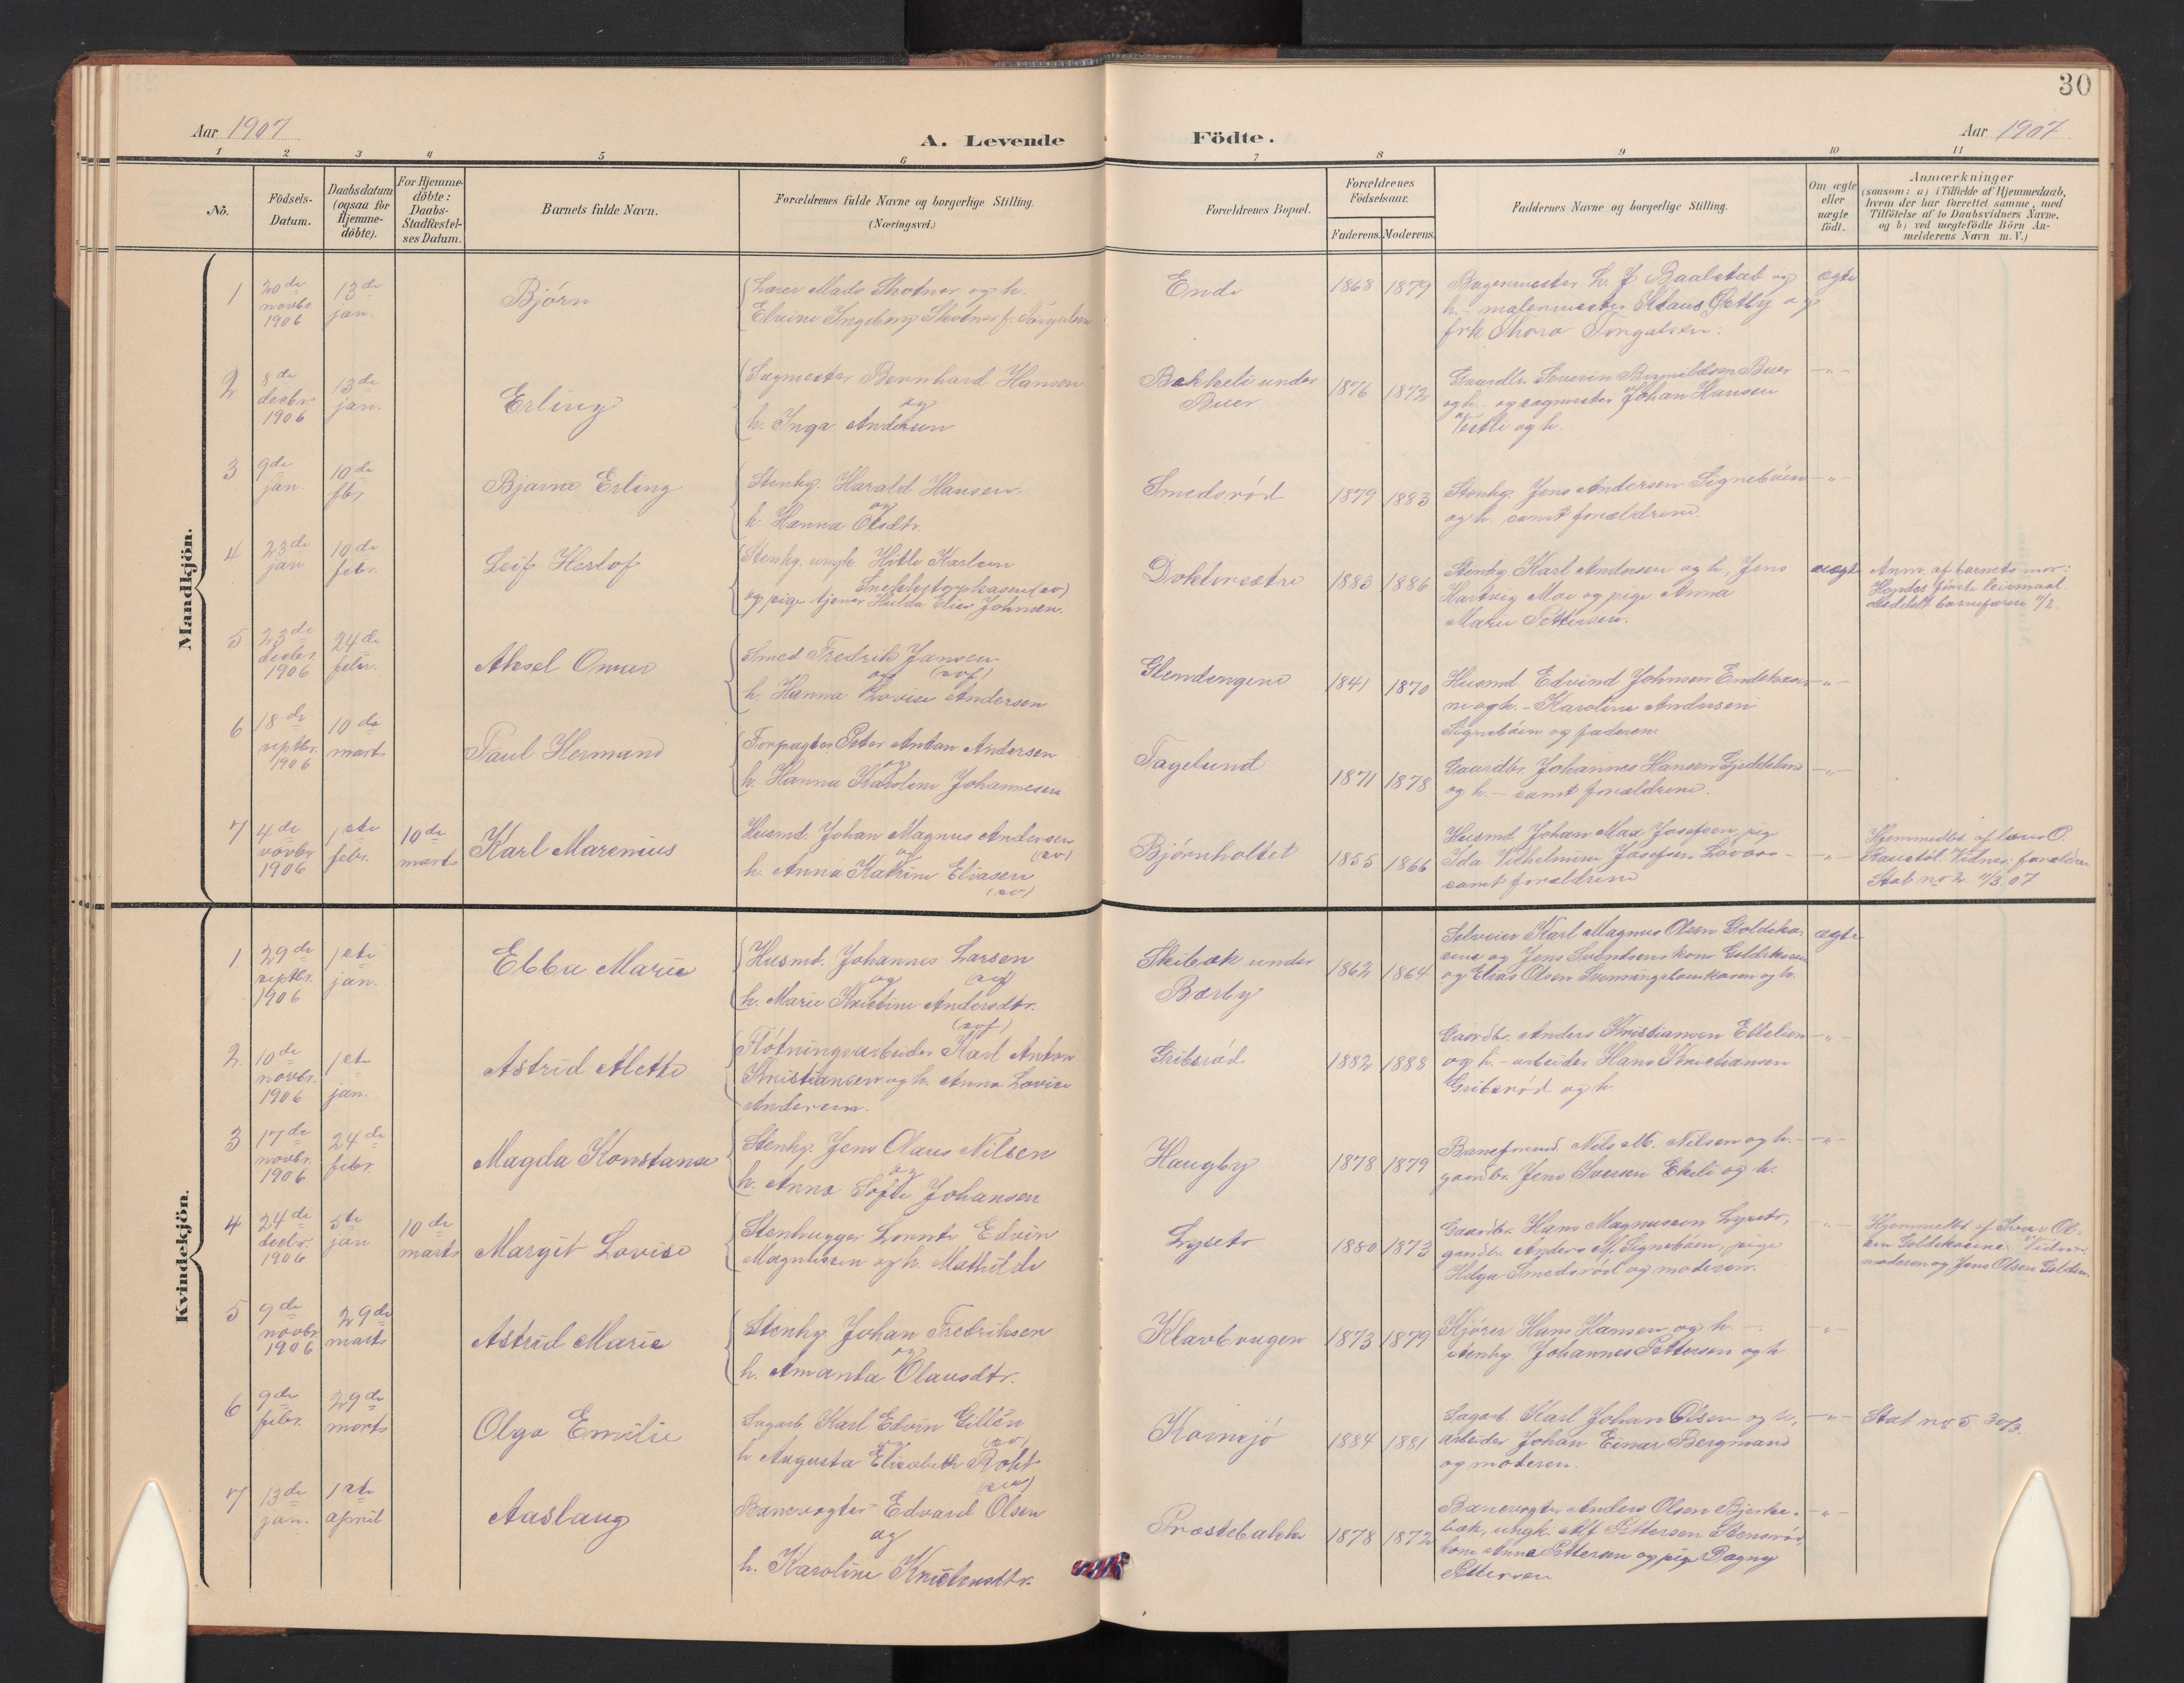 30
Aar 1907
A. Levende
Födte.
Aar 1907
1 2 3 4 5 6 7 8 9 10 11
No.
Födsels-
Datum.
Daabsdatum
(ogsaa for
Hjemme-
döbte).
For Hjemme-
döbte:
Daabs-
Stadfæstel-
ses Datum.
Barnets fulde Navn.
Forældrenes fulde Navne og borgerlige Stilling.
(Næringsvei.)
Forældrenes Bopæl.
Forældrenes
Födselsaar.
Faderens. Moderens.
Faddernes Navne og borgerlige Stilling.
Om ægte
eller
uægte
födt.
Anmærkninger
(saasom: a) i Tilfælde af Hjemmedaab,
hvem der har forrettet samme, med
Tilföielse af to Daabsvidners Navne,
og b) ved uægtefödte Börn An-
melderens Navn m. V.)
Mandkjön.
1
20de
novbr.
1906
13de
jan.
Björn
Lærer Mads
Elvine Ingeborg
Ende
1868 1879
Bagermester L. J. Baalstad og
h. - malermester Klaus og
frk Thora
ægte
2
8de
decbr.
1906
13de
jan.
Erling
Sagmester Bernhard Hansen
og
h. Inga Andersen
Bakkeli under
Buer.
1876 1872
Gaardbr. Severin Buer
og h. - og sagmester Johan Hansen
Vestli og h.
-"-
3
9de
jan
10de
fbr
Bjarne Erling
Stenhg. Harald Hansen
og
h. Hanna Olsdtr.
Smedsröd
1879 1883
Stenhg. Jens Andersen Signeböen
og h. samt forældrene.
-"-
4
23de
jan
10de
febr.
Leif Herlof
Stenhg. ungk. Karlsen
(av)
og pige tjener Hulda Johnsen.
1883 1886
Stenhg. Karl Andersen og h., Jens
Hartvig Moe og pige Anna
Marie Pettersen.
uægte
Anm. af barnets mor:
leiermaal
barnefaren 11/2.
5
23de
decbr
1906
24de
febr.
Aksel Omar
Smed. Fredrik Jansen
og
h. Hanna Lovise Andersen
Glendengene
1841 1870
Husmd. Edvind Johnsen
ne og h. - Karoline Andersen
Signeböen og faderen.
-"-
6
18de
septbr.
1906
10de
marts
Paul Hermand
Forpagter Peter Anton Andersen
og
h. Hanna Karoline Johannesen
Fagelund
1871 1878
Gaardbr. Johannes Hansen
og h. - samt forældrene.
-"-
7
4de
novbr
1906
1ste
febr.
10de
marts
Karl Marenius
Husmd. Johan Magnus Andersen
og (av)
h. Anna Katrine Eliasen
(av)
Björnholtet
1855 1866
Husmd. Johan Max Josefsen, pige
Ida Vilhelmine Josefsen
samt forældrene
-"-
Hjemmedbt af O.
Vidner: forældre
Stat no 2 11/3 07
Kvindekjön.
1
29de
septbr.
1906
1ste
jan.
Ebba Marie
Husmd. Johannes Larsen
og
h. Marie Kristine Andersdtr.
Skibæk under
Bærby
1862 1864
Selveier Karl Magnus Olsen
og Jens Svendsens kone
og Elias Olsen og h.
ægte
2
10de
novbr.
1906
1ste
jan.
Astrid Alette
Flötningsarbeider Karl Anton
Kristiansen og h. Anna Lovise
Andersen.
Gribsröd
1882 1888
Gaardbr. Anders Kristiansen
og h. - arbeider Hans Kristiansen
Gribsröd og h.
-"-
3
17de
novbr.
1906
24de
febr.
Magda Konstanse
Stenhg. Jens Olaus Nilsen
og
h. Anna Sofie Johansen
Haugby
1878 1879
Baneformd. Nils M. Nilsen og h. -
gaardbr. Jens Ekeli og h.
-"-
4
24de
decbr.
1906
5te
jan
10de
marts
Margit Lovise
Stenhugger Edvin
Magnussen og h. Mathilde
Lyseto
1880 1873
Gaardbr. Hans Magnussen
gaardbr. Anders M. Signeböen, pige
Helga Smedsröd og moderen.
-"-
Hjemmedbt af Ol-
sen Vidner
moderen og Jens Olsen
5
9de
novbr
1906
29de
marts
Astrid Marie
Stenhg. Johan Fredriksen
og
h. Amanda Olausdtr.
Klavbougen
1873 1879
Kjörer Hans Hansen og h. -
stenhg. Johannes Pettersen og h
-"-
6
9de
febr.
29de
marts
Olga Emilie
Sagarb. Karl Edvin
og (av)
h Augusta Elisabeth
Kornsjö
1884 1881
Sagarb. Karl Johan Olsen og h,
arbeider Johan Einar Bergmand
og moderen.
-"-
Stat no 5 30/3.
7
13de
jan.
1ste
april
Aaslaug
Banevogter Edvard Olsen
og
h. Karoline
Præstebakke
1878 1872
Banevogter Anders Olsen Bjerke-
bæk, ungk. Alf Pettersen Stensröd,
kone Anna Pettersen og pige Dagny
Pettersen
-"-